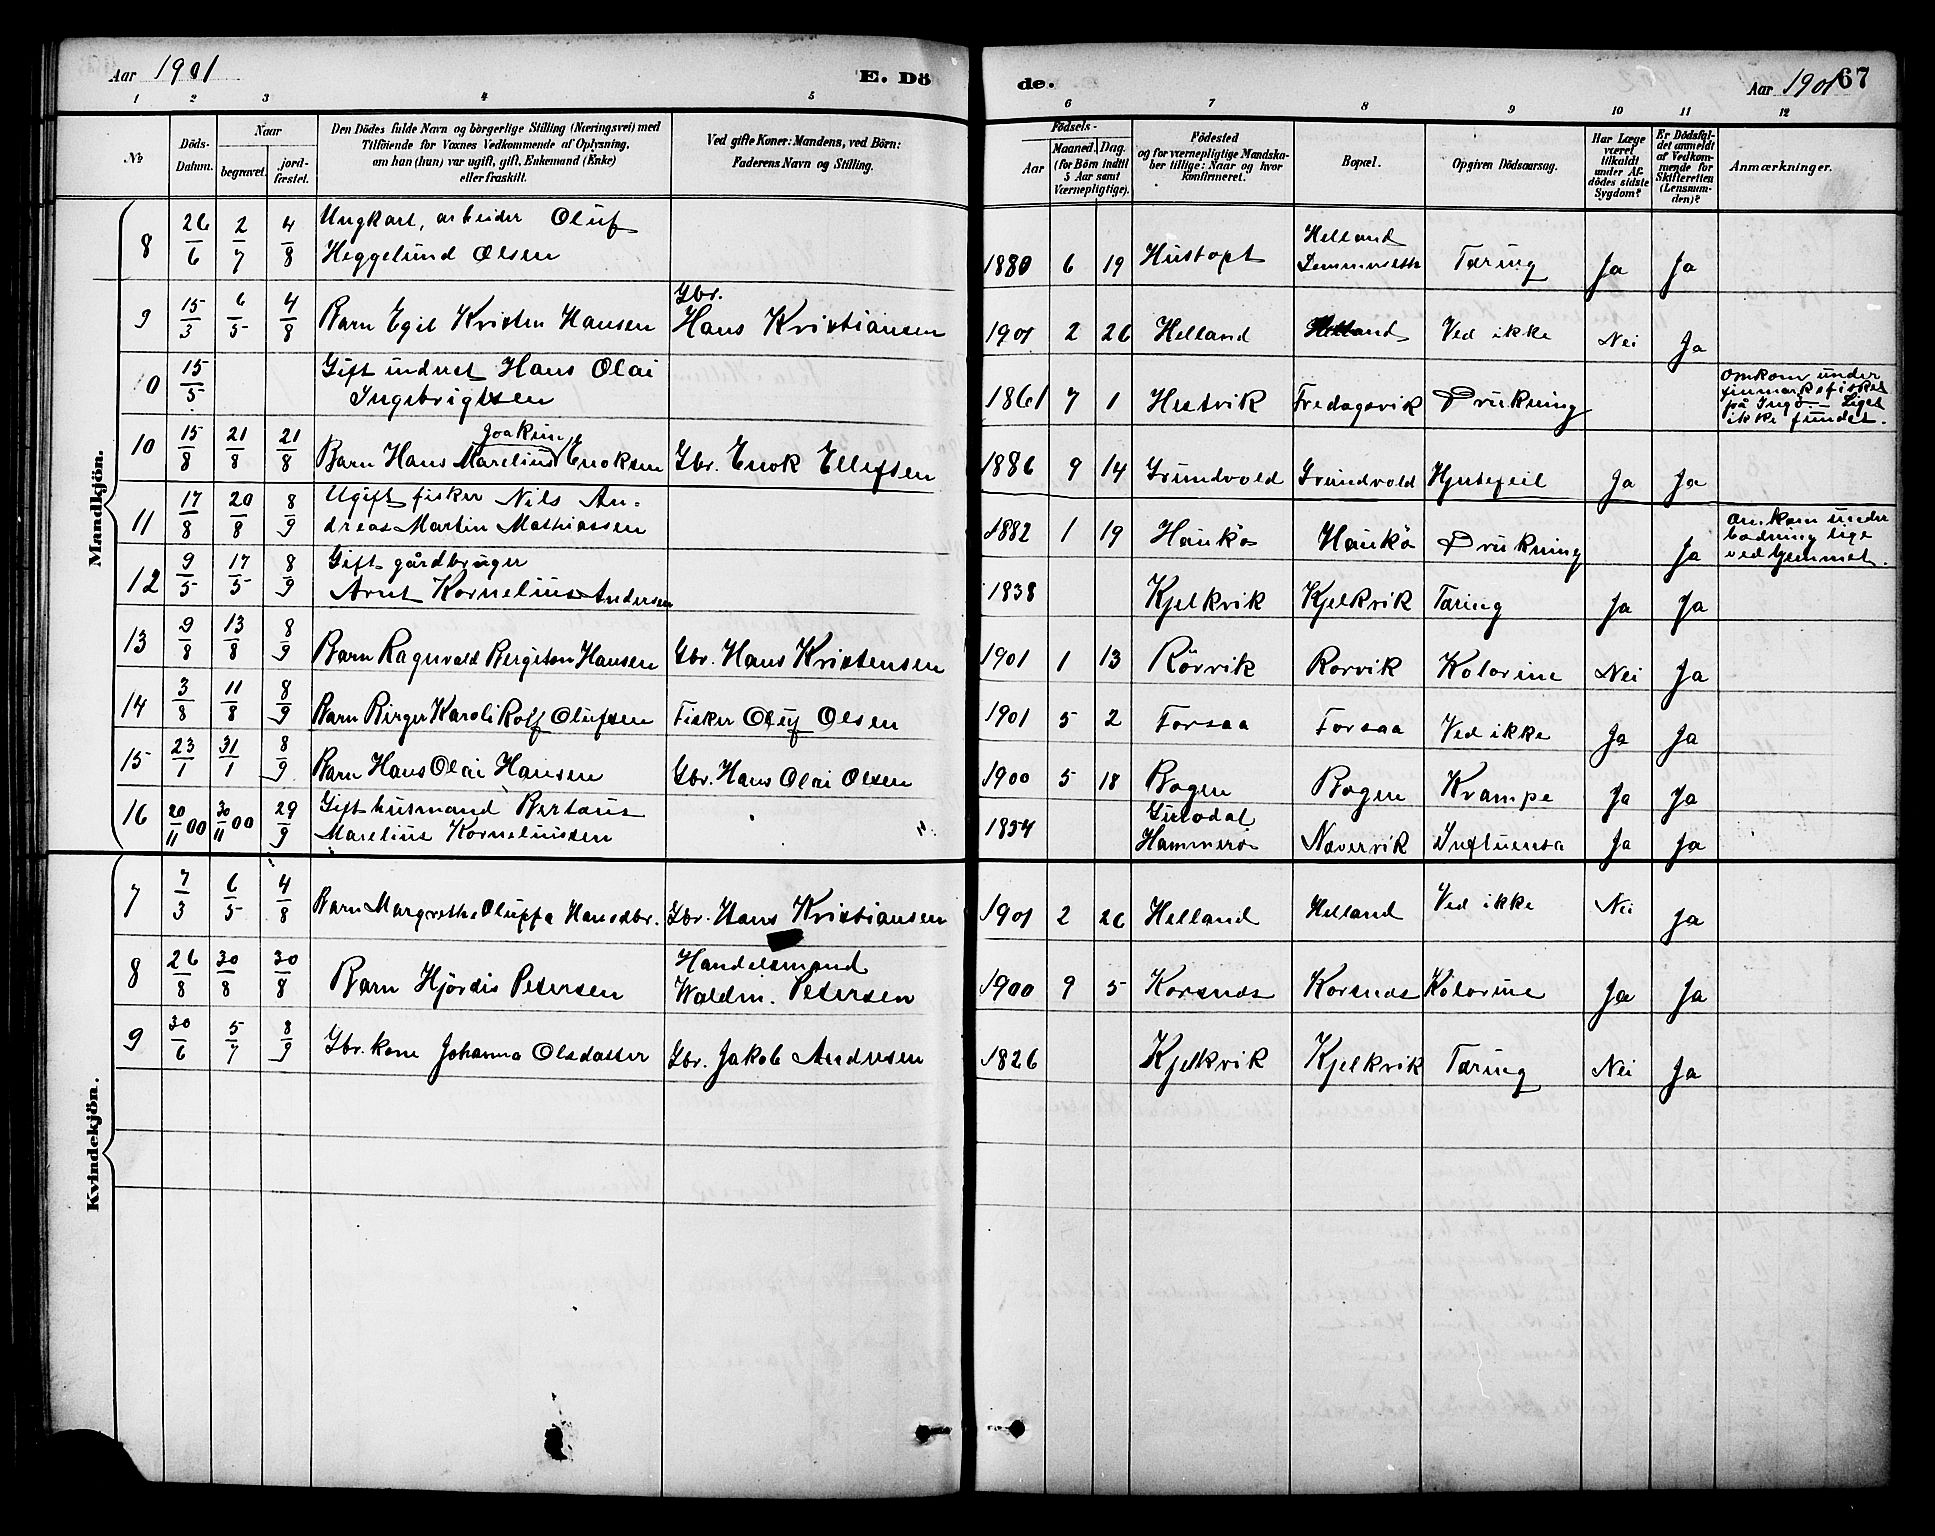 Aar 1901
E. Dö
de.
Aar 1901
67
1 2 3 4 5 6 7 8 9 10 11 12
No
Döds-
Datum.
Naar
begravet.
jord-
fæstet.
Den Dödes fulde Navn og borgerlige Stilling (Næringsvei) med
Tilföiende for Voxnes Vedkommende af Oplysning,
om han (hun) var ugift, gift, Enkemand (Enke)
eller fraskilt.
Ved gifte Koner: Mandens, ved Börn:
Faderens Navn og Stilling.
Födsels-
Aar
Maaned. Dag.
(for Börn indtil
5 Aar samt
Værnepligtige).
Födested
og for værnepligtige Mandska-
ber tillige: Naar og hvor
konfirmeret.
Bopæl.
Opgiven Dödsaarsag.
Har Læge
været
tilkaldt
under Af-
dödes sidste
Sygdom?
Er Dödsfal-
det anmeldt
af Vedkom-
mende for
Skifteretten
(Lensman-
den)?
Anmærkninger.
Mandkjön.
8 26/6 2/7 4/8 Ungkarl, arbeider Oluf
Heggelund Olsen 1880 6 19 Hustopt Helland
Tæring Ja Ja
9 15/3 6/5 4/8 Barn Egil Kristen Hansen Gbr.
Hans Kristiansen 1901 2 26 Helland Helland Ved ikke Nei Ja
10 15/5 Gift indret Hans Olai
Ingebrigtsen 1861 7 1 Hestvik Fredagsvik Drukning omkom under
finmarksfisket
på Ingö – Liget
ikke fundet.
10 15/8 21/8 21/8 Barn Hans Marelius Joakim Enoksen Gbr. Enok Ellefsen 1886 9 14 Grundvold Grundvold Hjertefeil Ja Ja
11 17/8 20/8 8/9 Ugift fisker Nils An-
dreas Martin Mathiassen 1882 1 19 Haukö Haukö Drukning Ja omkom under
badning lige
ved hjemmet.
12 9/5 17/5 8/9 Gift gårdbruger
Arnt Kornelius Andersen 1838 Kjelkvik Kjelkvik Tæring Ja Ja
13 9/8 13/8 8/9 Barn Ragnvald Bergiton Hansen Gbr. Hans Kristensen 1901 1 13 Rörvik Rorvik Kolorine Nei Ja
14 3/8 11/8 8/9 Barn Birger Karoli Rolf Olufsen Fisker Oluf Olsen 1901 5 2 Forsaa Forsaa Ved ikke Ja Ja
15 23/1 31/1 8/9 Barn Hans Olai Hansen Gbr. Hans Olai Olsen 1900 5 18 Bogen Bogen Krampe Ja Ja
16 20/11 00 30/11 00 29/9 Gift husmand Bertæus
Marelius Korneliussen " 1854 Gulodal
Hammerö Nævervik Influensa Ja Ja
Kvindekjön.
7 7/3 6/5 4/8 Barn Margrethe Oluffa Hansdbr. Gbr. Hans Kristiansen 1901 2 26 Helland Helland Ved ikke Nei Ja
8 26/8 30/8 30/8 Barn Hjördis Petersen Handelsmand
Waldm. Petersen 1900 9 5 Korsnæs Korsnæs Kolorine Ja Ja
9 30/6 5/7 8/9 Gbr. kone Johanna Olsdatter Gbr. Jakob Andresen 1826 Kjelkvik Kjelkvik Tæring Nei Ja